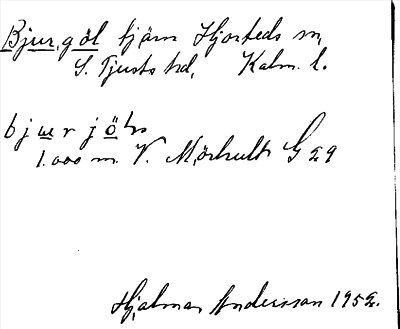 Bjur,göl tjärn Hjorteds sn,
S. Tjusts hd, Kalm. l.
bjur jöln
1.000 m. V. Mörhult G 29
Hjalmar Andersson 1952.